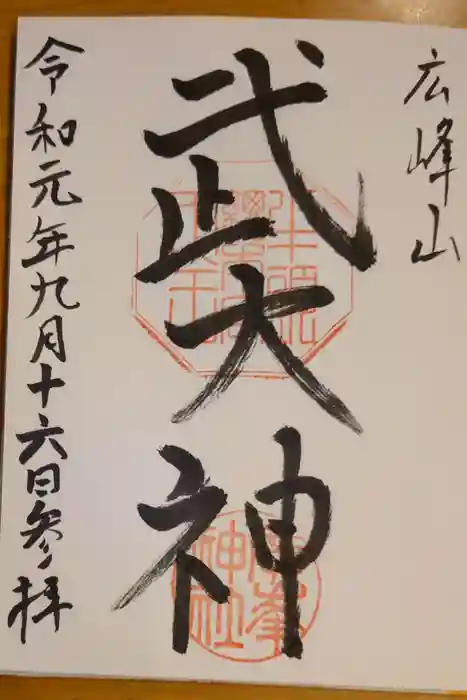 広峰山
武大神
令和元年九月十六日参拝